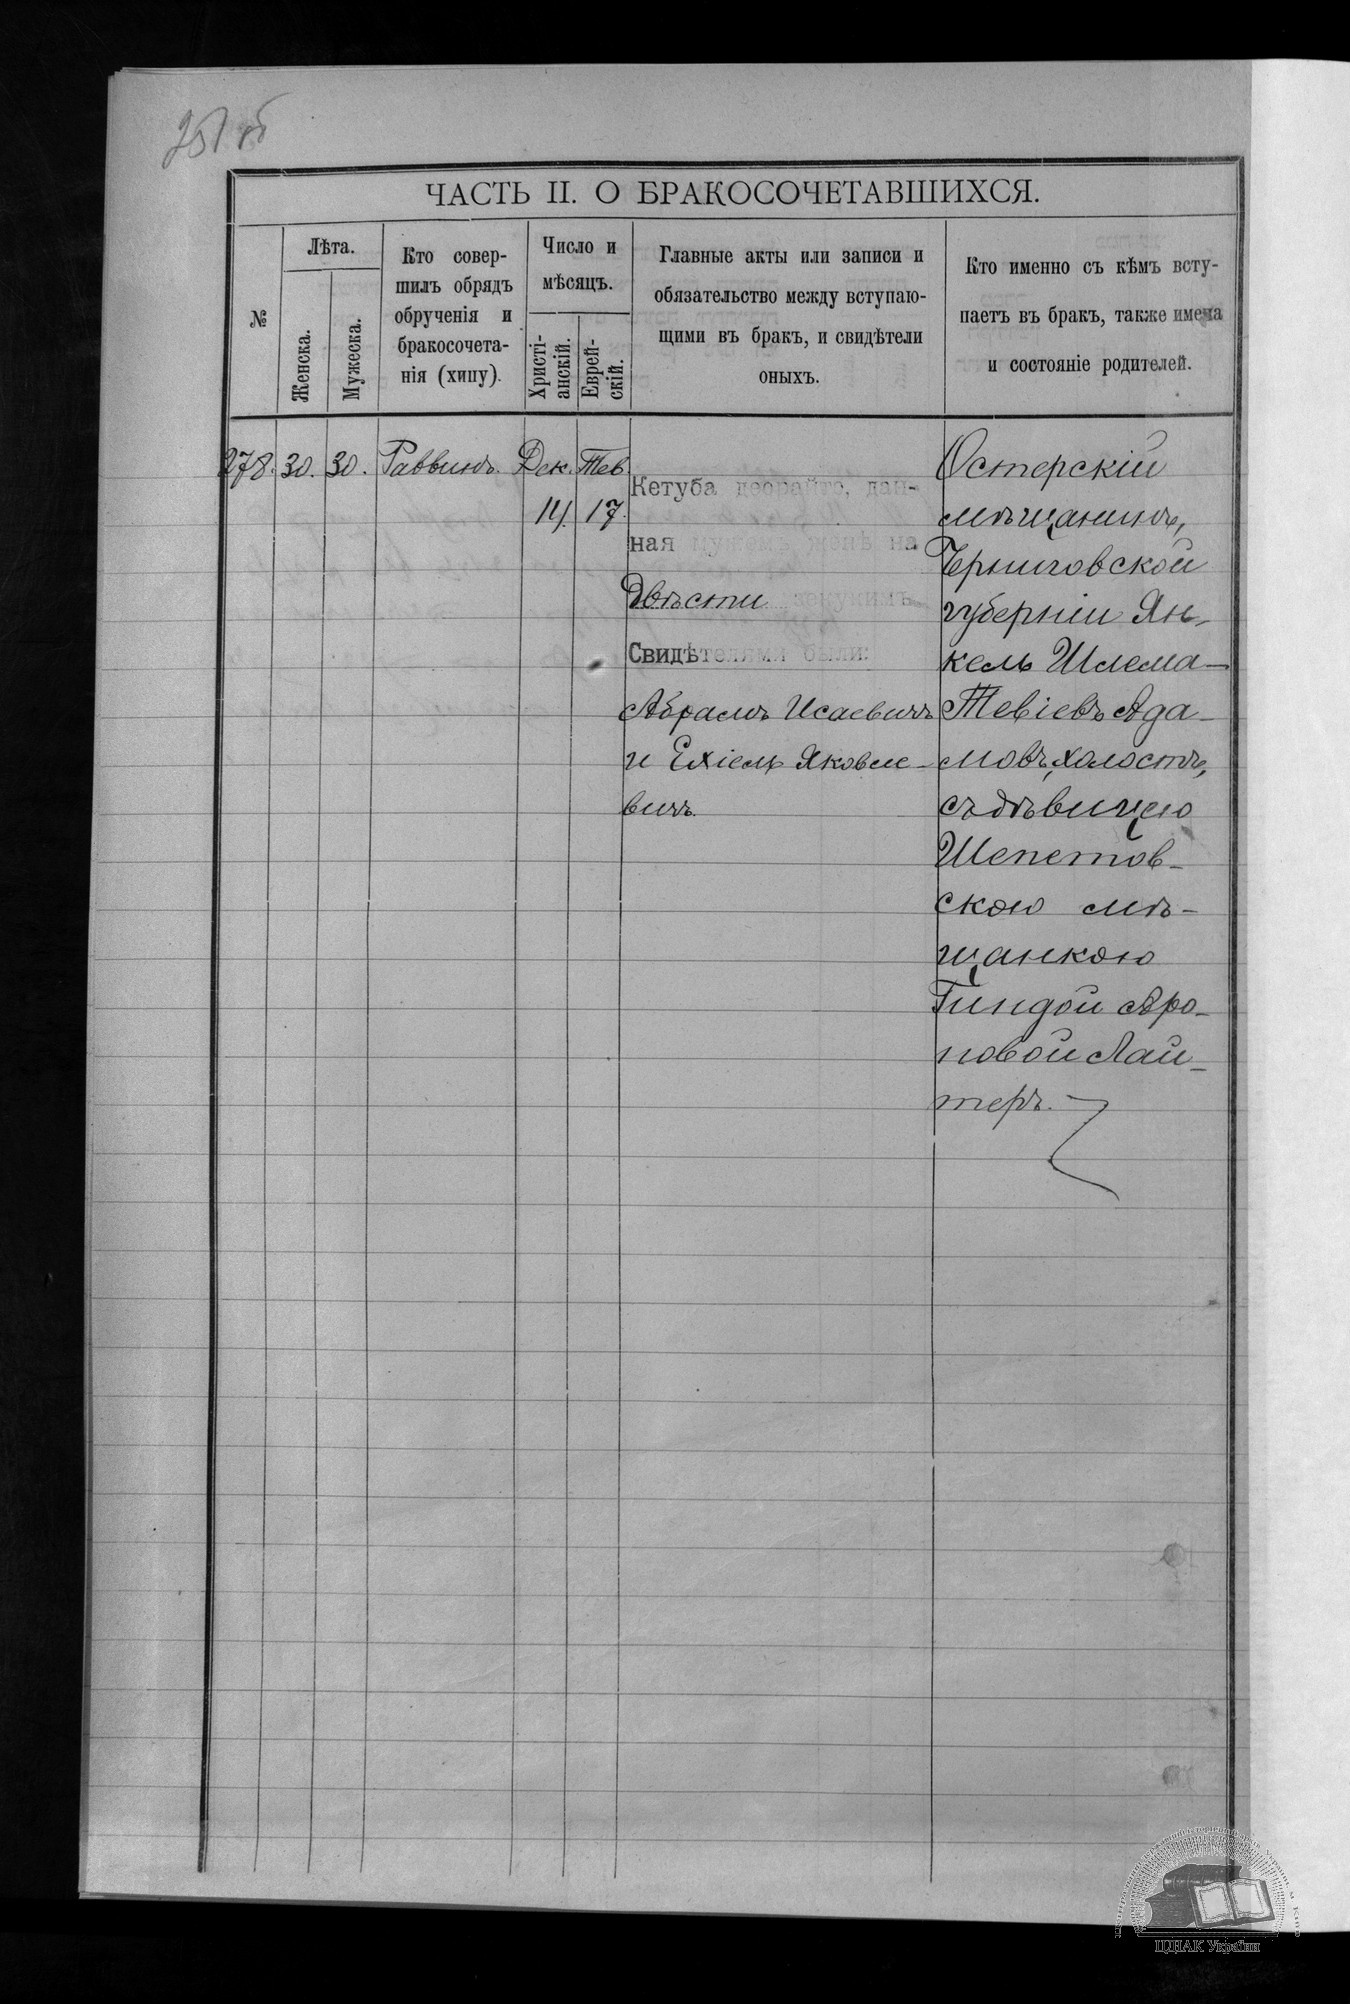 251 об
ЧАСТЬ II. О БРАКОСОЧЕТАВШИХСЯ.
№
Лѣта.
Женска.
Мужеска.
Кто совер-
шилъ обрядъ
обрученія и
бракосочета-
нія (хипу).
Число и
мѣсяцъ.
Христі-
анскій.
Еврей-
скій.
Главные акты или записи и
обязательство между вступаю-
щими въ бракъ, и свидѣтели
оныхъ.
Кто именно съ кѣмъ всту-
паетъ въ бракъ, также имена
и состояніе родителей.
278. 30. 30. Раввинъ. Дек. Тев
14. 17.
Кетуба деорайте, дан-
ная мужемъ женѣ на
Двѣсти зекукимъ
Свидѣтелями были:
Абрамъ Исаевичъ
и Ехіель Яковле-
вичъ.
Остерскій
мѣщанинъ,
Черниговской
губерніи Ян-
кель Шлема-
Тевіевъ Ада-
мовъ, холостъ,
съ дѣвицею
Шепетов-
скою мѣ-
щанкою
Гиндой Аро-
новой Лай-
теръ.
ЦДІАК України